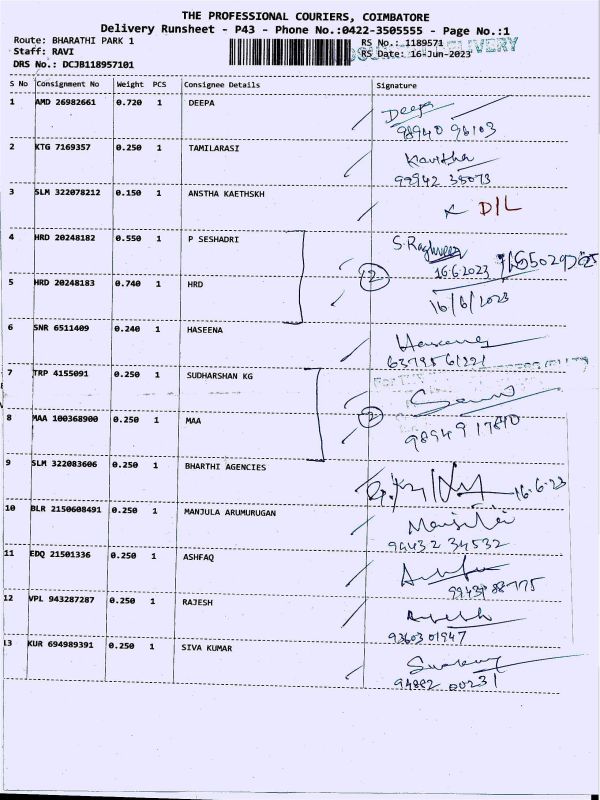 THE PROFESSIONAL COURIERS, COIMBATORE
Delivery Runsheet - P43 - Phone No.:0422-3505555 - Page No.:1
Route: BHARATHI PARK 1
RS No.: 1189571
DELIVERY
Staff: RAVI
RS Date: 16-Jun-2023
DRS No.: DCJB118957101
S No Consignment No Weight PCS Consignee Details Signature
1 AMD 26982661 0.720 1 DEEPA Deepa
98940 96103
2 KTG 7169357 0.250 1 TAMILARASI Kavitha
99942 35073
3 SLM 322078212 0.150 1 ANSTHA KAETHSKH D/L
4 HRD 20248182 0.550 1 P SESHADRI S. Raghveer
2 16.6.2023
5 HRD 20248183 0.740 1 HRD 16/6/2023
6 SNR 6511409 0.240 1 HASEENA Haseena
63795 61221
7 TRP 4155091 0.250 1 SUDHARSHAN KG
8 MAA 100368900 0.250 1 MAA 2
98949 17610
9 SLM 322083606 0.250 1 BHARTHI AGENCIES 16.6.23
10 BLR 2150608491 0.250 1 MANJULA ARUMURUGAN
94432 34532
11 EDQ 21501336 0.250 1 ASHFAQ
12 VPL 943287287 0.250 1 RAJESH
93603 01947
13 KUR 694989391 0.250 1 SIVA KUMAR
94882 00231